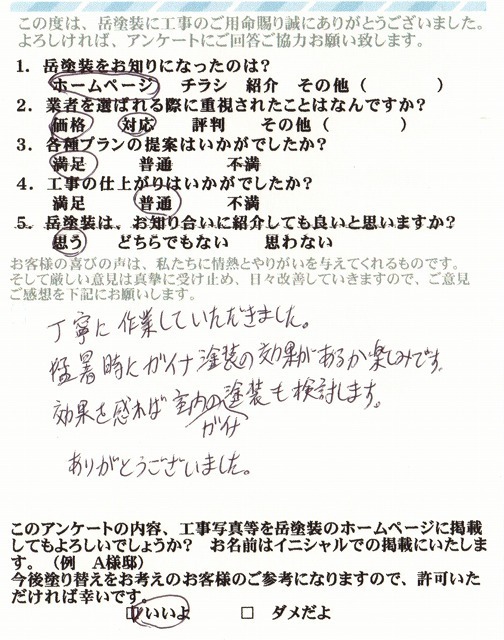 この度は、岳塗装に工事のご用命賜り誠にありがとうございました。
よろしければ、アンケートにご回答ご協力お願い致します。
1．岳塗装をお知りになったのは？
ホームページ　チラシ　紹介　その他（　　　　）
2．業者を選ばれる際に重視されたことはなんですか？
価格　対応　評判　その他（　　　　）
3．各種プランの提案はいかがでしたか？
満足　普通　不満
4．工事の仕上がりはいかがでしたか？
満足　普通　不満
5．岳塗装は、お知り合いに紹介しても良いと思いますか？
思う　どちらでもない　思わない
お客様の喜びの声は、私たちに情熱とやりがいを与えてくれるものです。
そして厳しい意見は真摯に受け止め、日々改善していきますので、ご意見
ご感想を下記にお願いします。
丁寧に作業していただきました。
猛暑時にガイナ塗装の効果があるか楽しみです。
効果を感れば室内の塗装も検討します。
ガイナ
ありがとうございました。
このアンケートの内容、工事写真等を岳塗装のホームページに掲載
してもよろしいでしょうか？　お名前はイニシャルでの掲載にいたしま
す。（例　A様邸）
今後塗り替えをお考えのお客様のご参考になりますので、許可いた
だければ幸いです。
□いいよ　□ ダメだよ